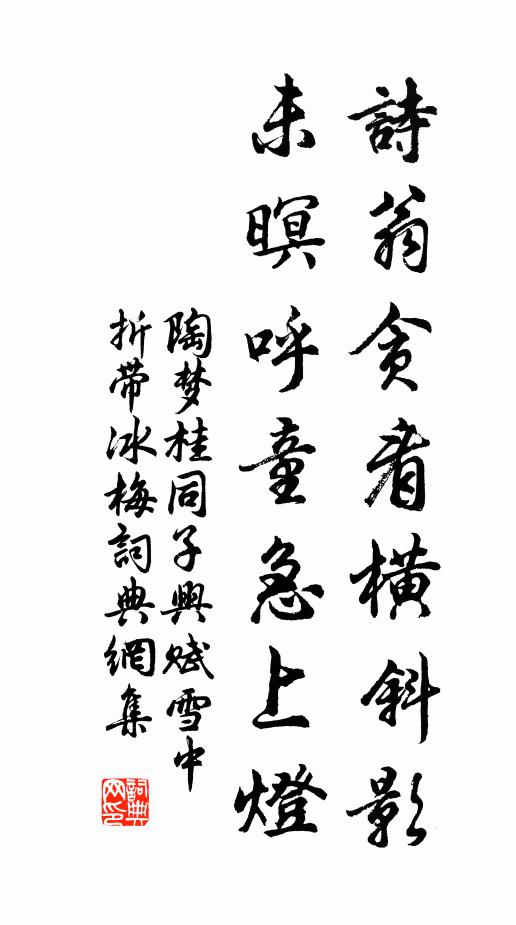 詩翁貪看橫斜影
未暝呼童急上燈
陶梦桂同子興赋雪中
折帶冰梅詞典網集
詞典
网印